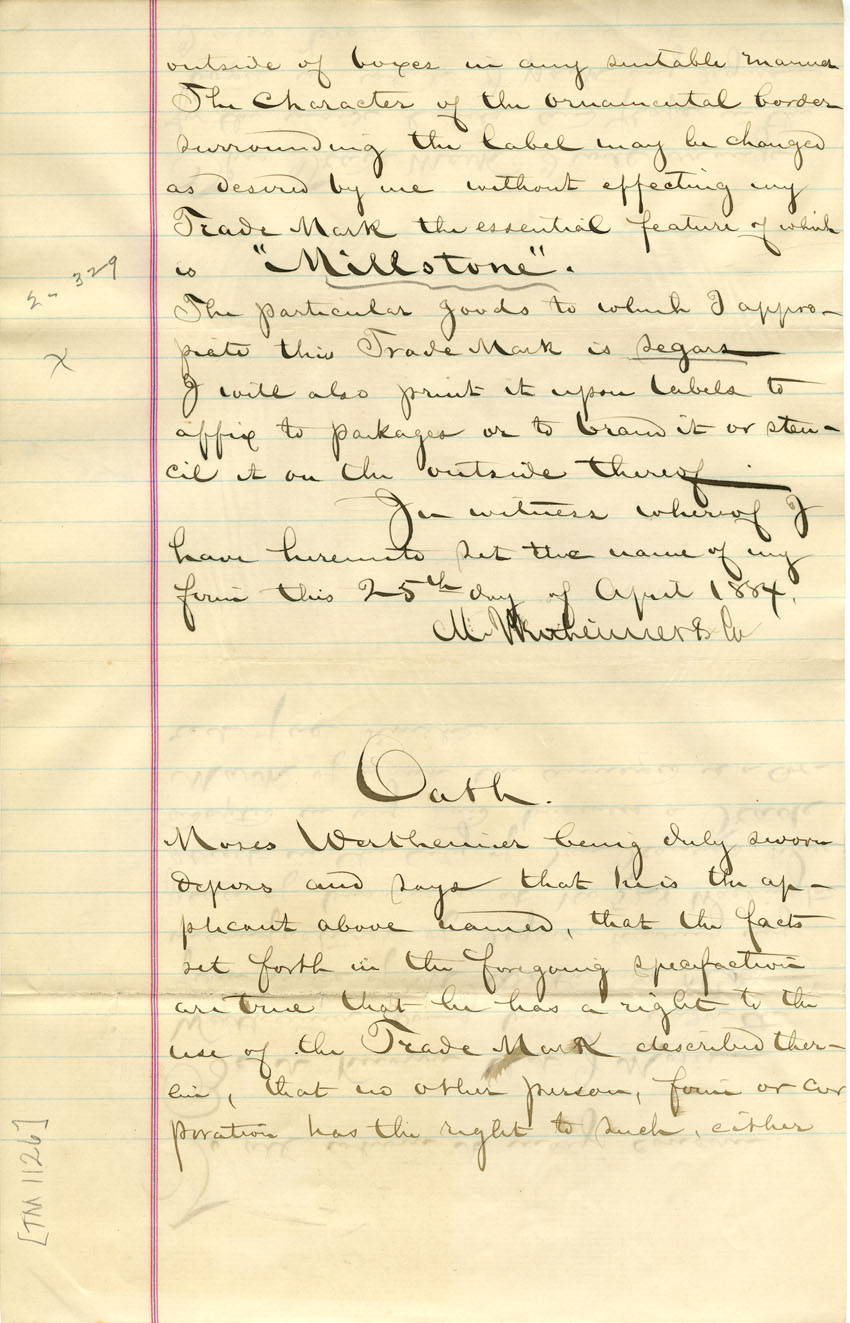 outside of boxes in any suitable manner
The Character of the ornamental border
surrounding the label may be changed
as desired by me without effecting my
Trade Mark the essential feature of which
is "Millstone".
2- 329
The particular goods to which I appro-
priate this Trade Mark is segars
X
I will also print it upon labels to
affix to packages or to brand it or sten-
cil it on the outside thereof.
In witness whereof I
have hereunto set the name of my
firm this 25th day of April 1884.
M. Wertheimer & Co
Oath.
Moses Wertheimer being duly sworn
deposes and says that he is the ap-
plicant above named, that the facts
set forth in the foregoing specifaction
are true that he has a right to the
use of the Trade Mark described ther-
ein, that no other person, firm or cor
poration has the right to such, either
[TM 1126]